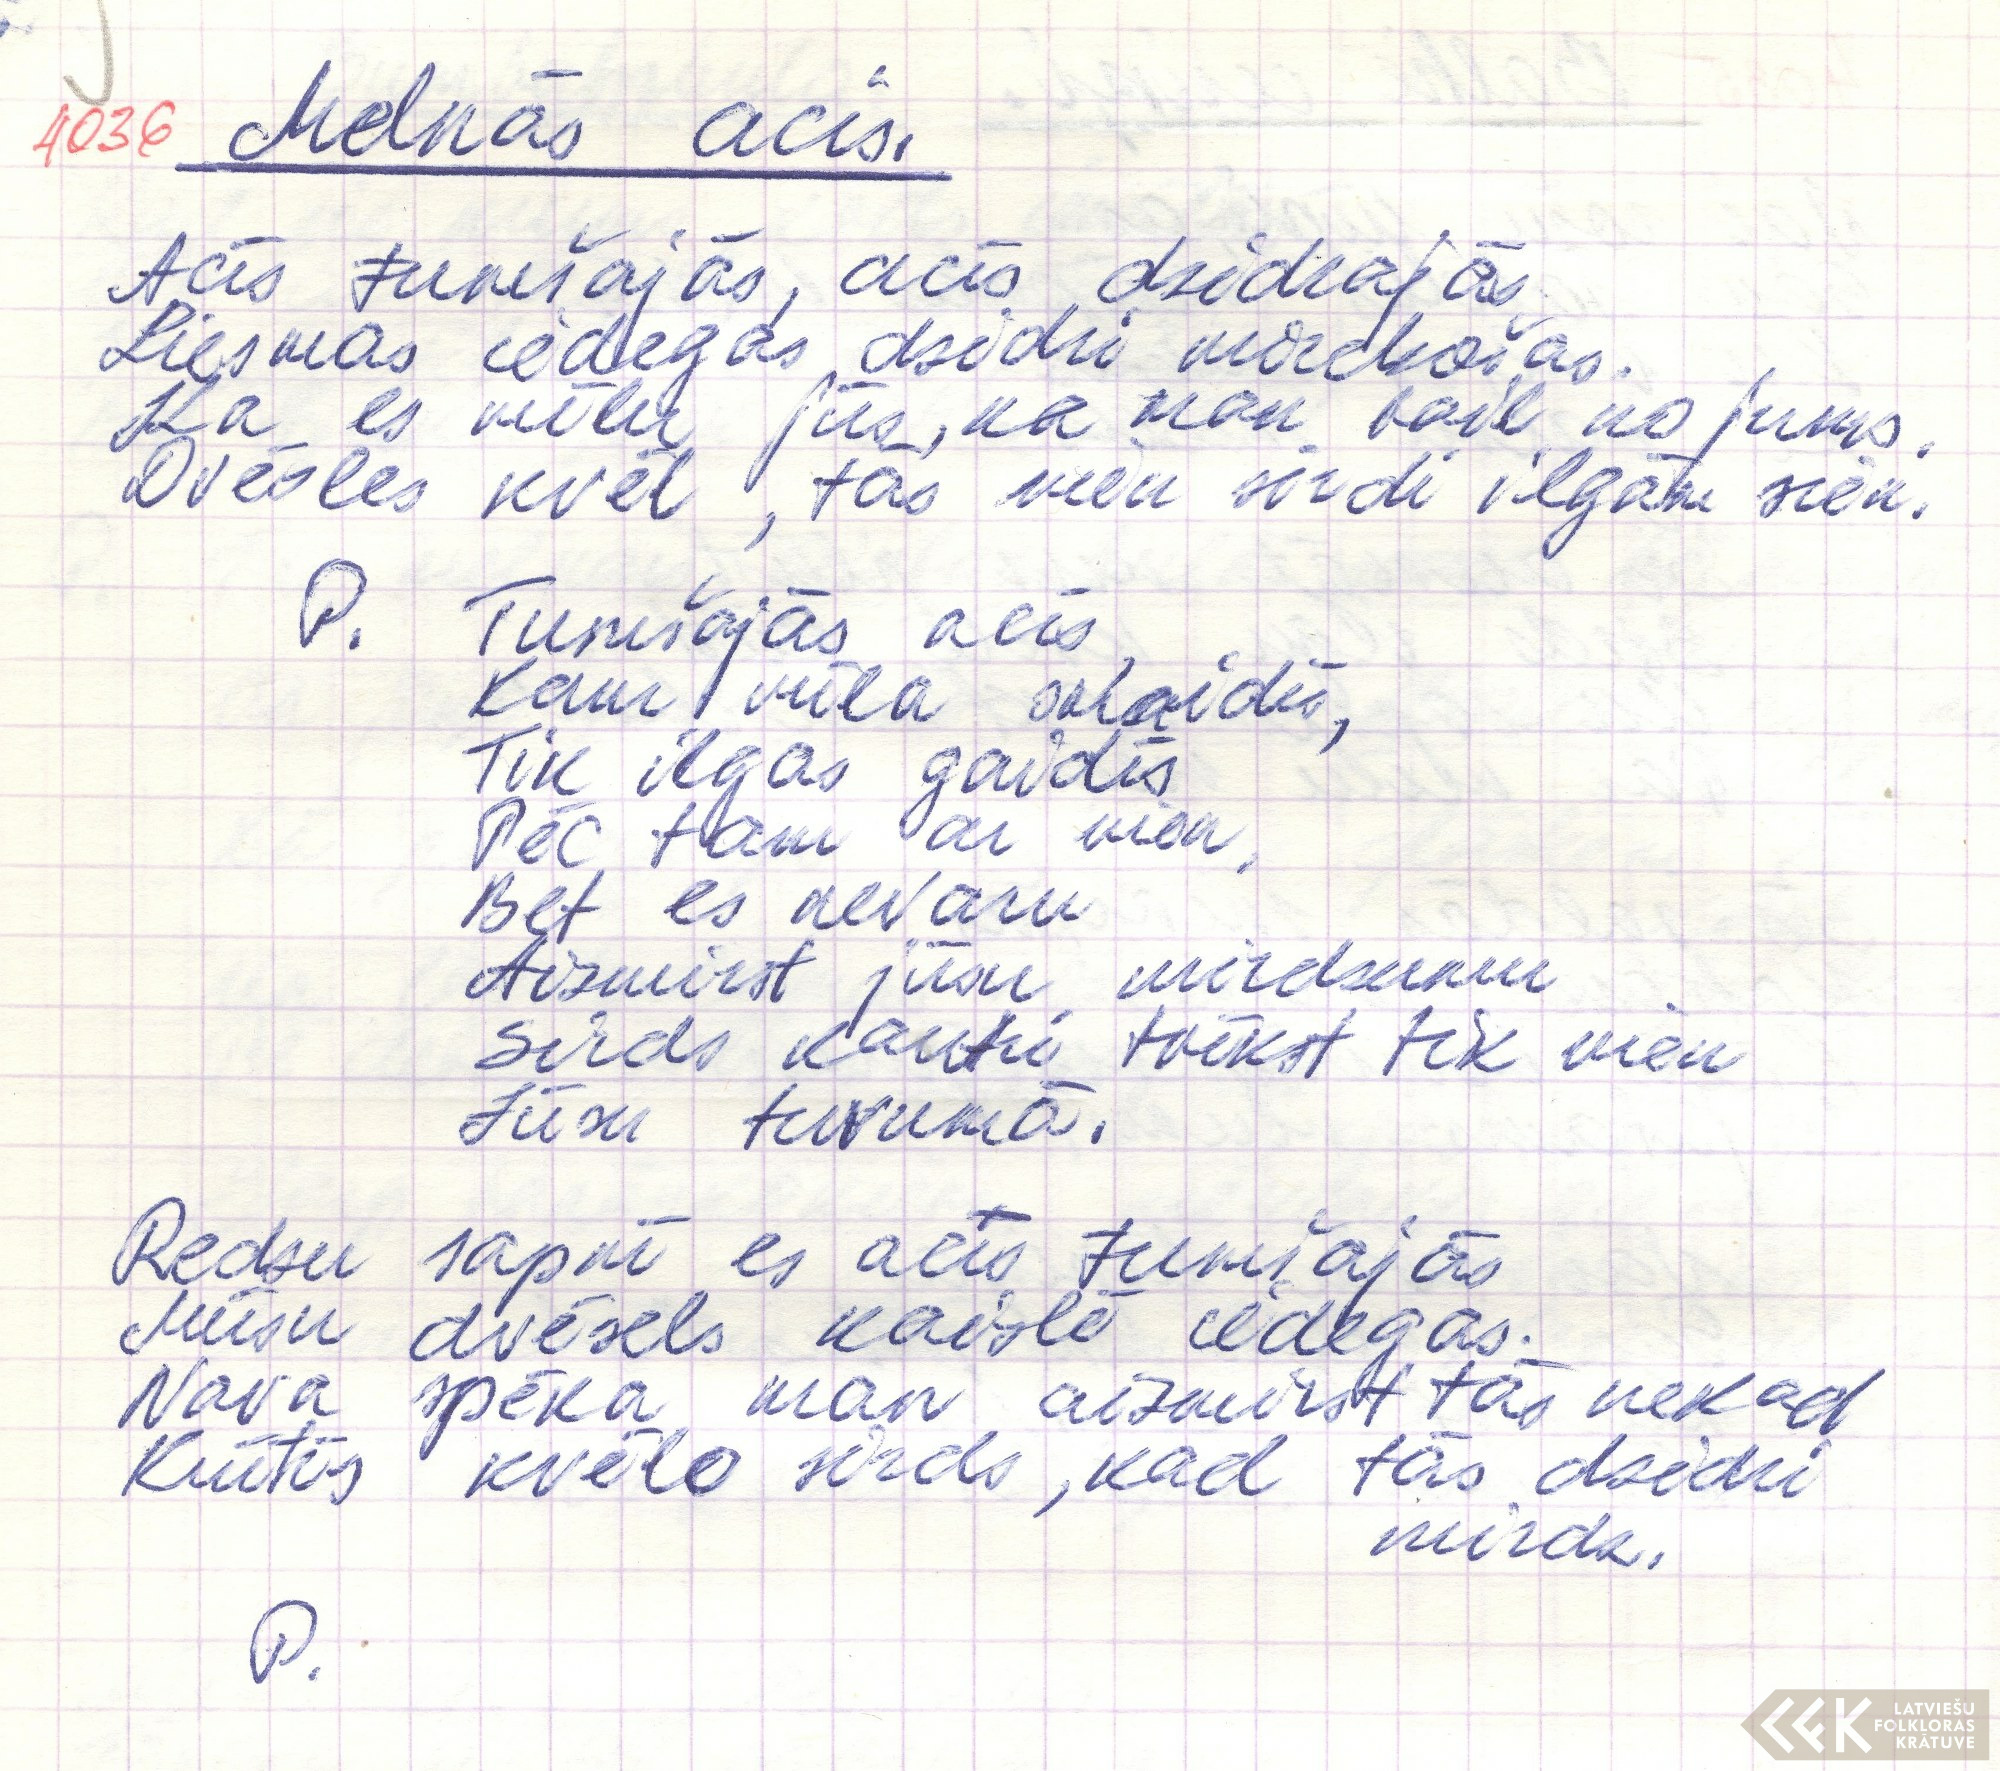 4036 Melnās acis.
Acis tumšajās, acīs dzidrajās
Liesmas iedegas dzidri mirdzošas.
Ka es mīlu jūs, ka man bail no jums.
Dvēsles kvēl, tās vien sirdi ilgām sien.
P. Tumšajās acīs
Kam mīla solaidīs,
Tik ilgas gaidīs
Pēc tam ar vien,
Bet es nevaru
Aizmirst jūsu mirdzumu
Sirds kautri tvīkst tik vien
Jūsu tuvumā.
Redzu sapnī es acīs tumšajās
Mūsu dvēsels kaislē iedegas.
Nava spēka man aizmirst tās nekad
Krūtīs kvēlo sirds, kad tās dzidri
mirdz.
P.
LATVIEŠU
FOLKLORAS
KRĀTUVE